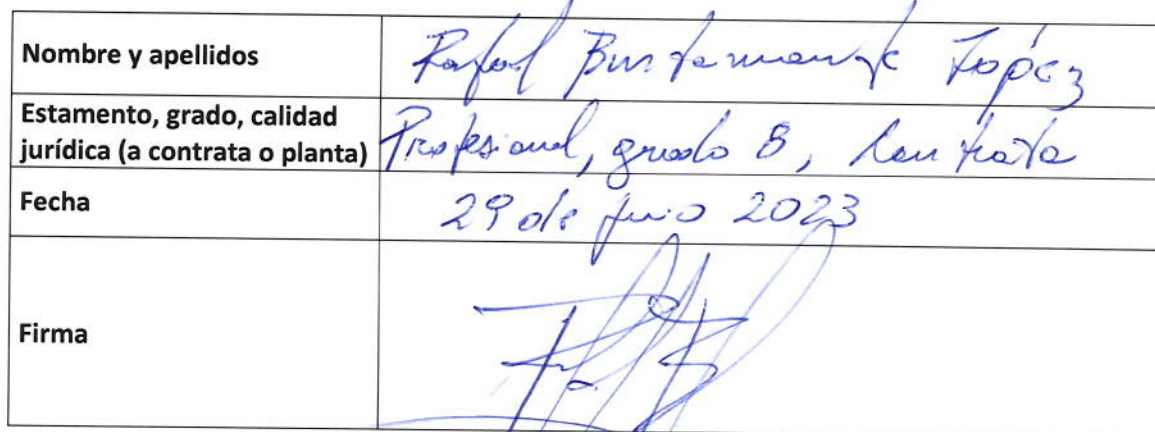 Nombre y apellidos Rafael Bustamante López
Estamento, grado, calidad
jurídica (a contrata o planta) Profesional, grado 8, Contrata
Fecha 29 de 2023
Firma